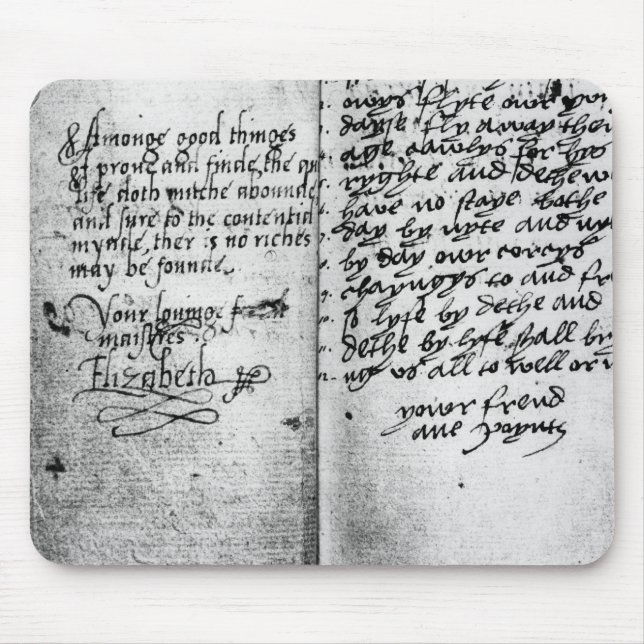 & Amonge good thinges
I prove and finde, the qu
life doth mutche abounde
and sure to the contentid
mynde, ther is no riches
may be founde.
Your lovinge
maistres
Elizabeth
owys flyte owr
dayse fly away then
age cawlys for hys
ryghte and dethe w
have no staye bothe
day by nyte and ny
by day owr corcys
chayngys to and fr
lyfe by dethe and
dethe by lyfe shall bry
ng us all to well or
yowr frend
ane Poynts